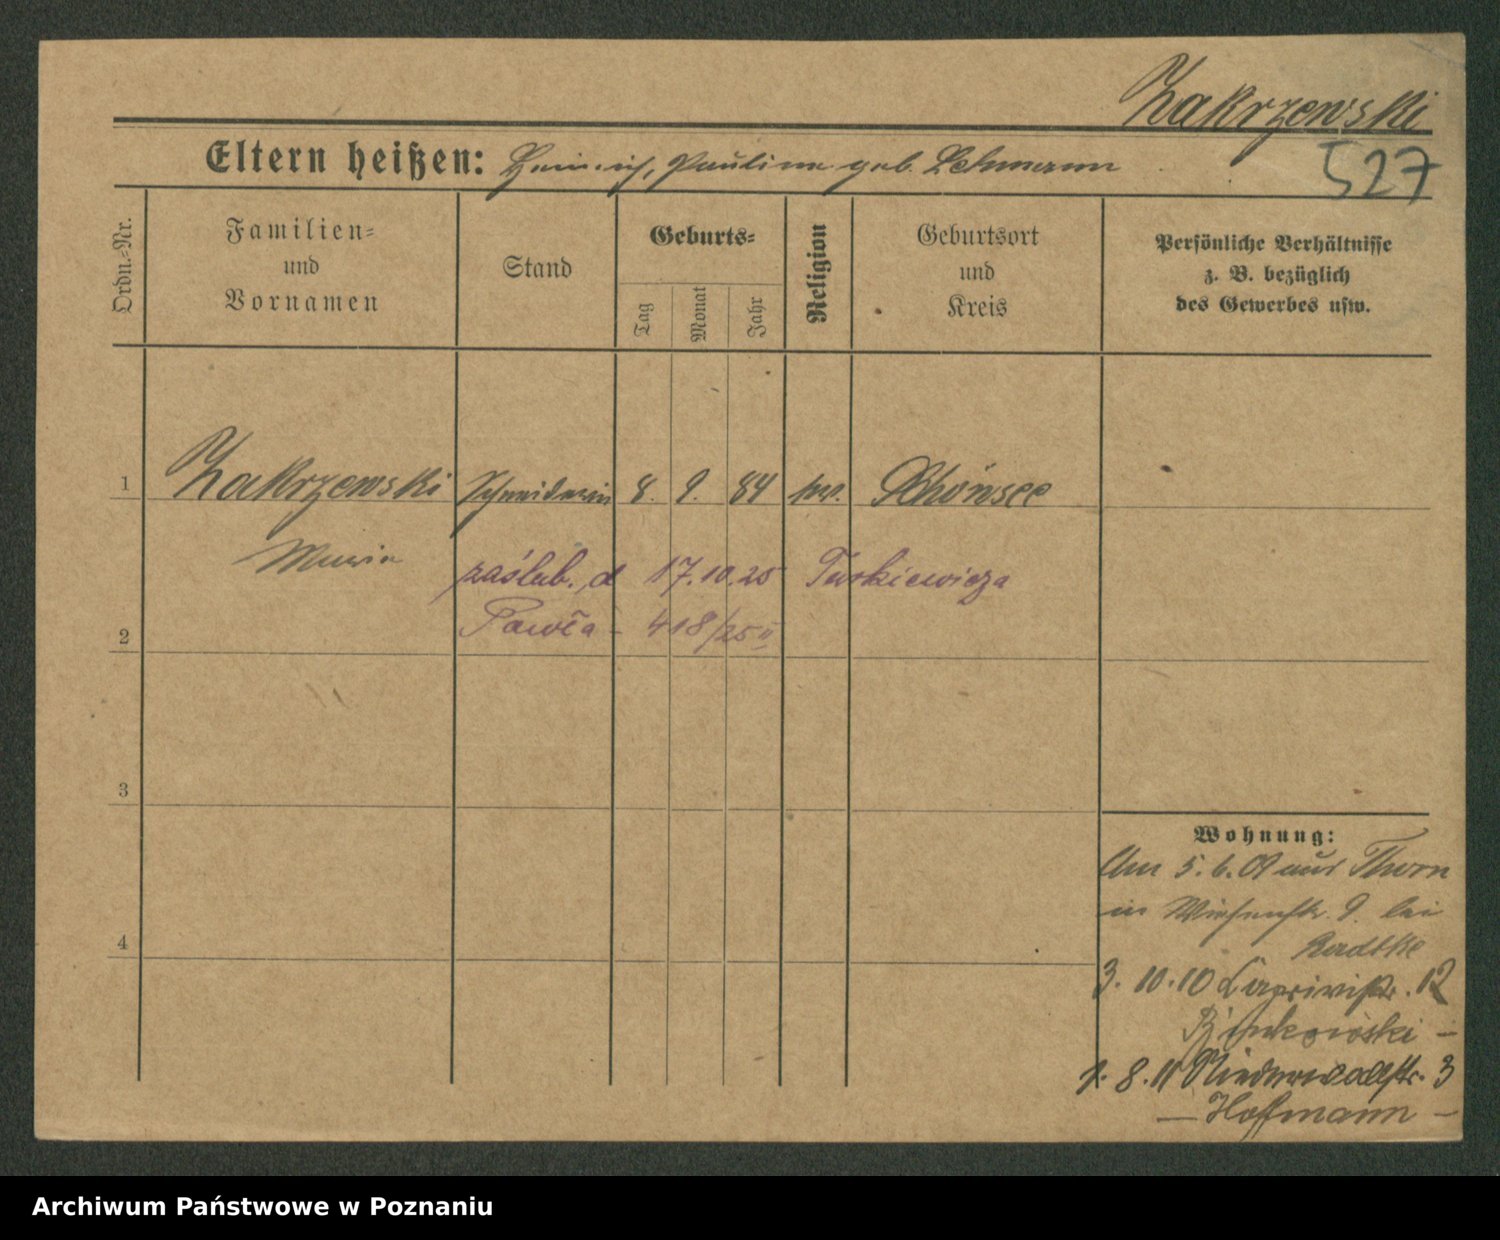 Zakrzewski
Eltern heißen: Heinrich, Pauline geb. Lehmann
527
Ordn.-Nr.
Familien-
und
Vornamen
Stand
Geburts-
Tag
Monat
Jahr
Religion
Geburtsort
und
Kreis
Persönliche Verhältnisse
z. B. bezüglich
des Gewerbes usw.
1 Zakrzewski Schneiderin 8. 9. 84 Schönsee
Maria
zaślub. d 17.10.25 Turkiewicza
Pawła - 418/25 II
2
3
4
Wohnung:
Am 5. 6. 09 aus Thorn
in Wiesenstr. 9. bei
Radtke
3. 10. 10 Caprivistr. 12
1. 8. 11 Niederwallstr. 3
— Hoffmann —
Archiwum Państwowe w Poznaniu